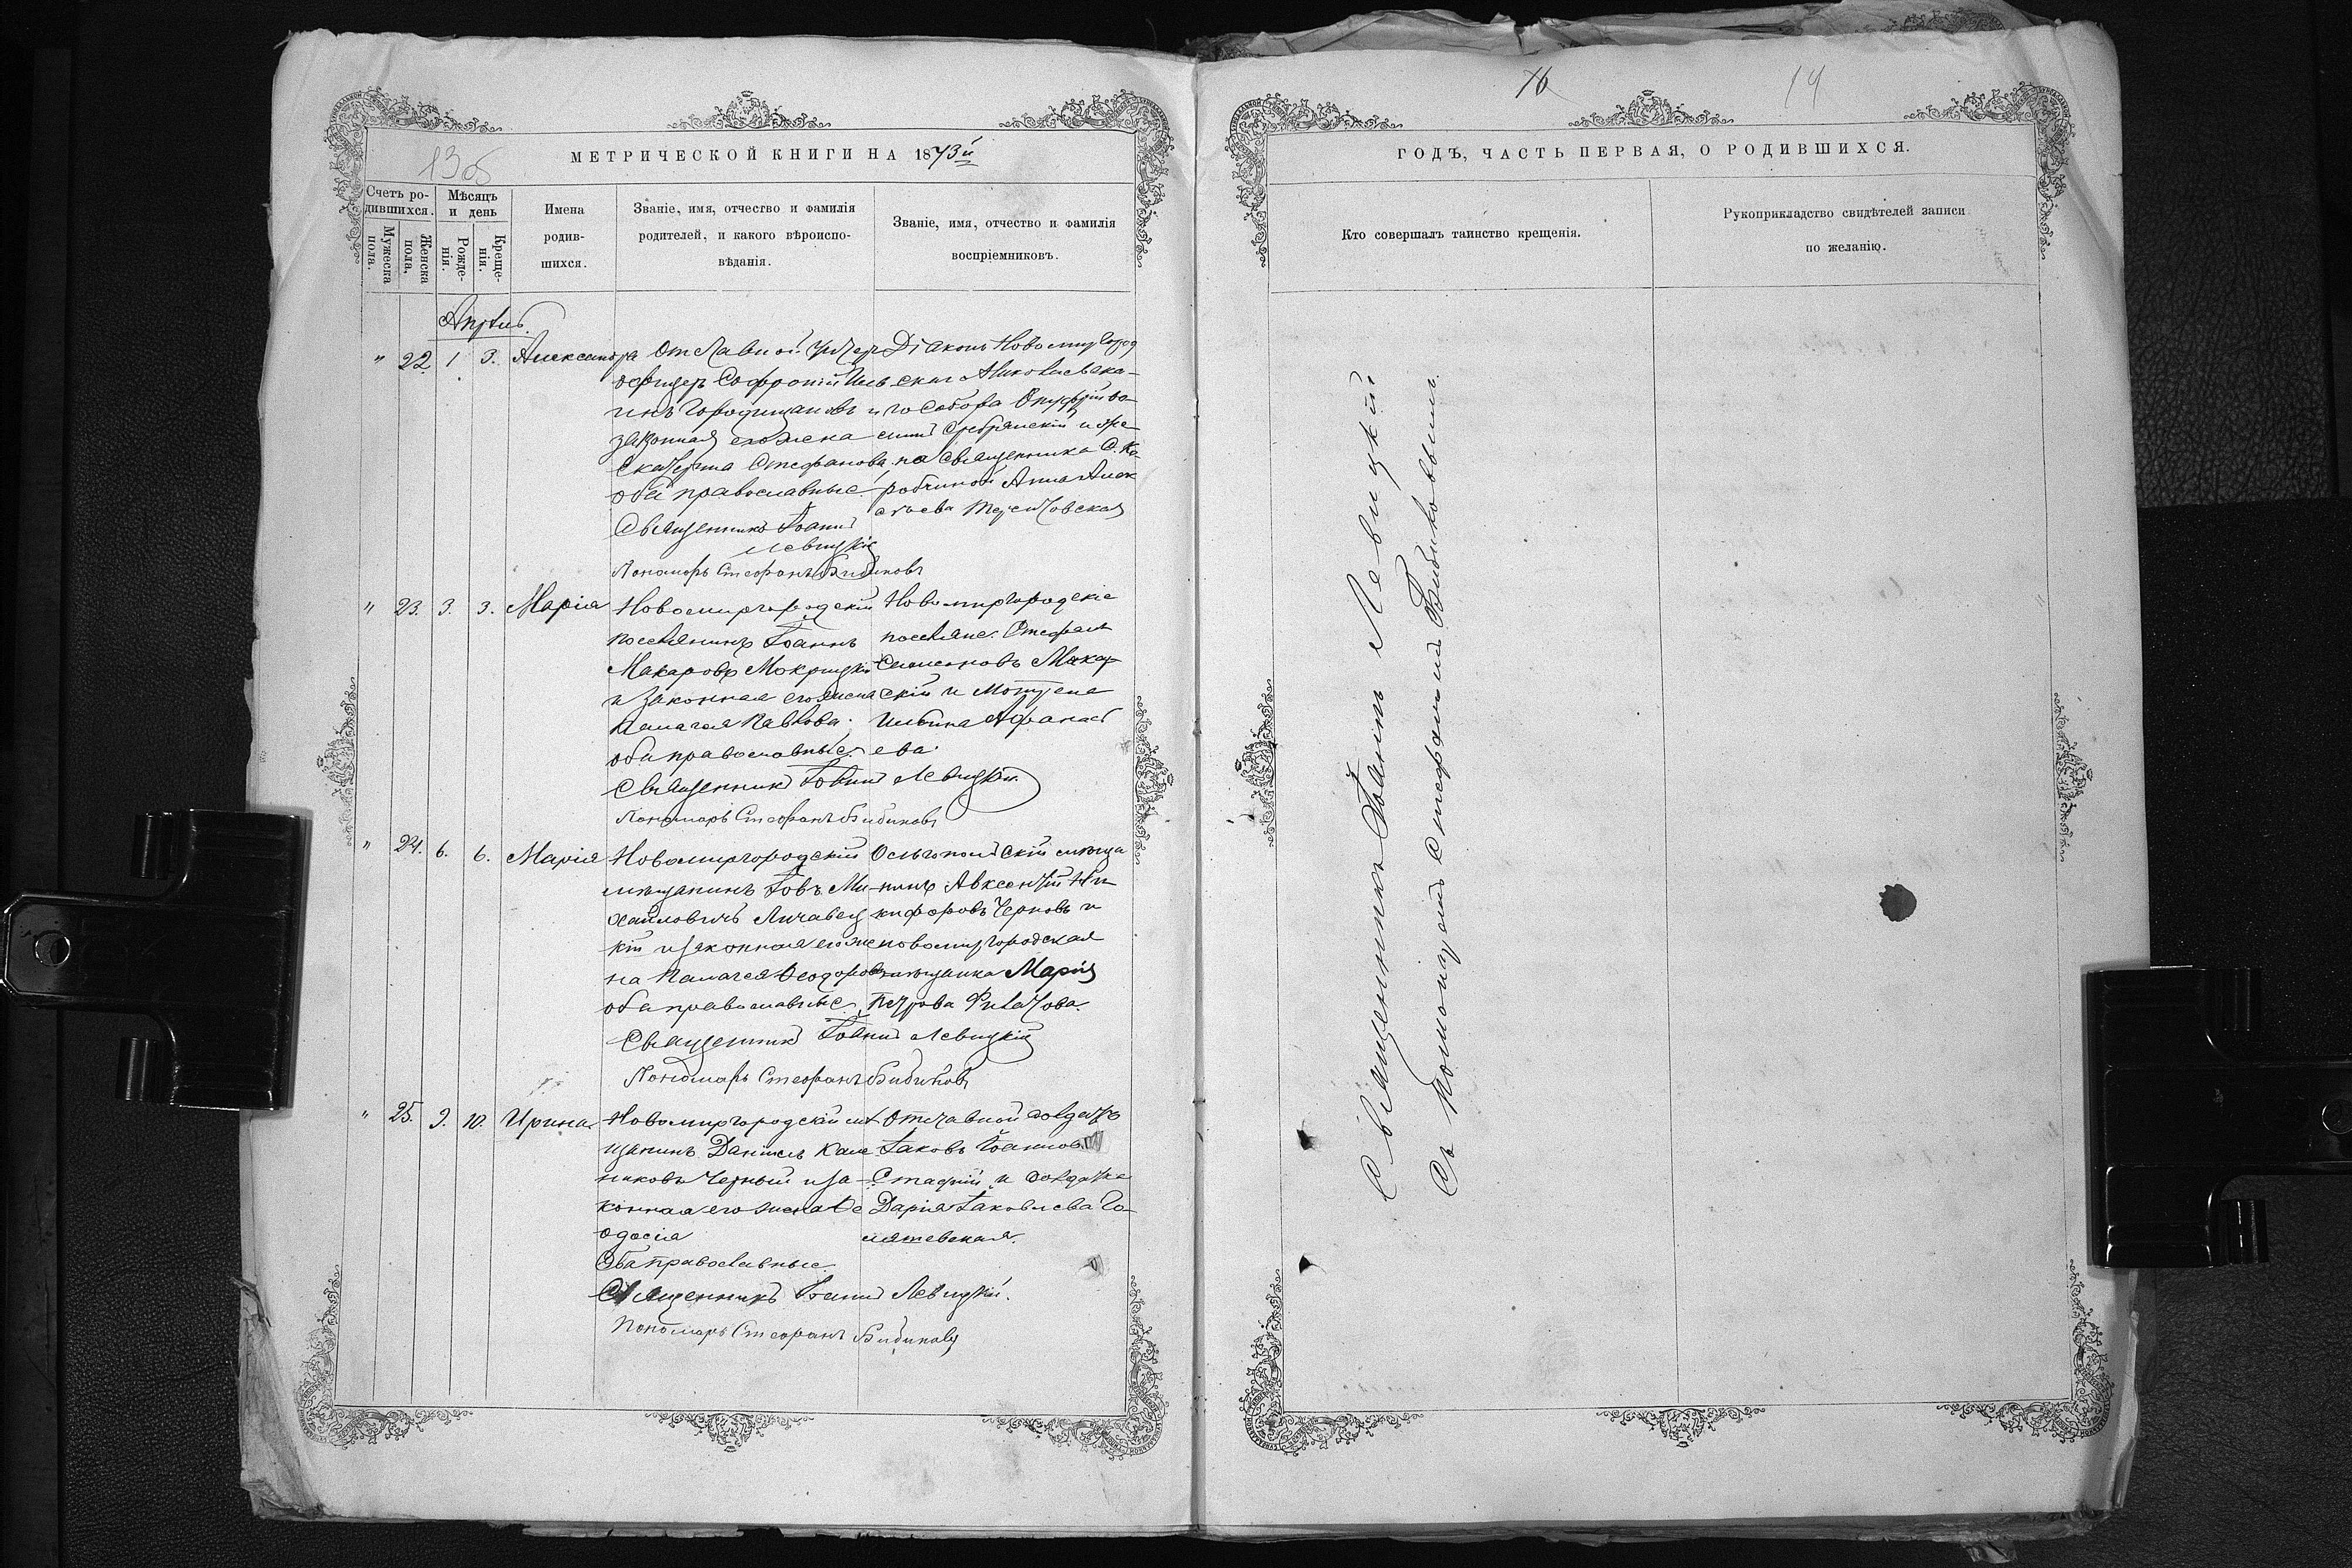 13об
МЕТРИЧЕСКОЙ КНИГИ НА 1873й
Счетъ родившихся.
Мѣсяцъ и день
Мужеска пола.
Женска пола.
Рожденія.
Крещенія.
Имена родившихся.
Званіе, имя, отчество и фамилія родителей, и какого вѣроисповѣданія.
Званіе, имя, отчество и фамилія воспріемниковъ.
Апрѣль.
" 22 1 3. Александра
Отставной унтер
офицеръ Софроній Иль
инъ Городищановъ и
законная его жена
Екатерина Стефанова
обѣ православные.
Діаконъ Новомиргород
скаго Николаевска-
го Собора Онуфрій Ва-
сил Сребрянскій и же-
на Священника С. Ко-
робчиной Анна Алек
сѣева
Священникъ Іоаннъ
Левицкій
Пономарь Стефанъ Бибиковъ
" 23. 3. 3. Марія
Новомиргородскій
поселянинъ Іоаннъ
Макаровъ Мокрицкій
и законная его жена
Пелагея Павлова.
оба православные.
Новомиргородскіе
поселяне: Стефанъ
Симеоновъ Макар
скій и Мотрена
Ильина Афанась
ева.
Священникъ Іоаннъ Левицкій.
Пономарь Стефанъ Бибиковъ
" 24. 6. 6. Марія
Новомиргородскій
мѣщанинъ Іовъ Ми-
хайловичъ
кій и законная его же
на Пелагея Ѳеодорова
оба православные
Ольгопольскій мѣща
нинъ Авксентій Ни
кифоровъ Черновъ и
новомиргородская
мѣщанка Марія
Петрова Филатова.
Священникъ Іоаннъ Левицкій
Пономарь Стефанъ Бибиковъ
" 25. 9. 10. Ирина
Новомиргородскій мѣ
щанинъ Даніилъ Кале
никовъ Черный и за-
конная его жена Ѳе
одосія
Оба православные.
Отставной солдатъ
Іаковъ Іоанновъ
Стафій и солдатка
Дарія Іаковлева Го-
ляшевская.
Священникъ Іоаннъ Левицкій.
Пономарь Стефанъ Бибиковъ
16
14
ГОДЪ, ЧАСТЬ ПЕРВАЯ, О РОДИВШИХСЯ.
Кто совершалъ таинство крещенія.
Рукоприкладство свидѣтелей записи по желанію.
Священникъ Іоаннъ Левицкій
Съ Пономаремъ Стефаномъ Бибиковымъ.